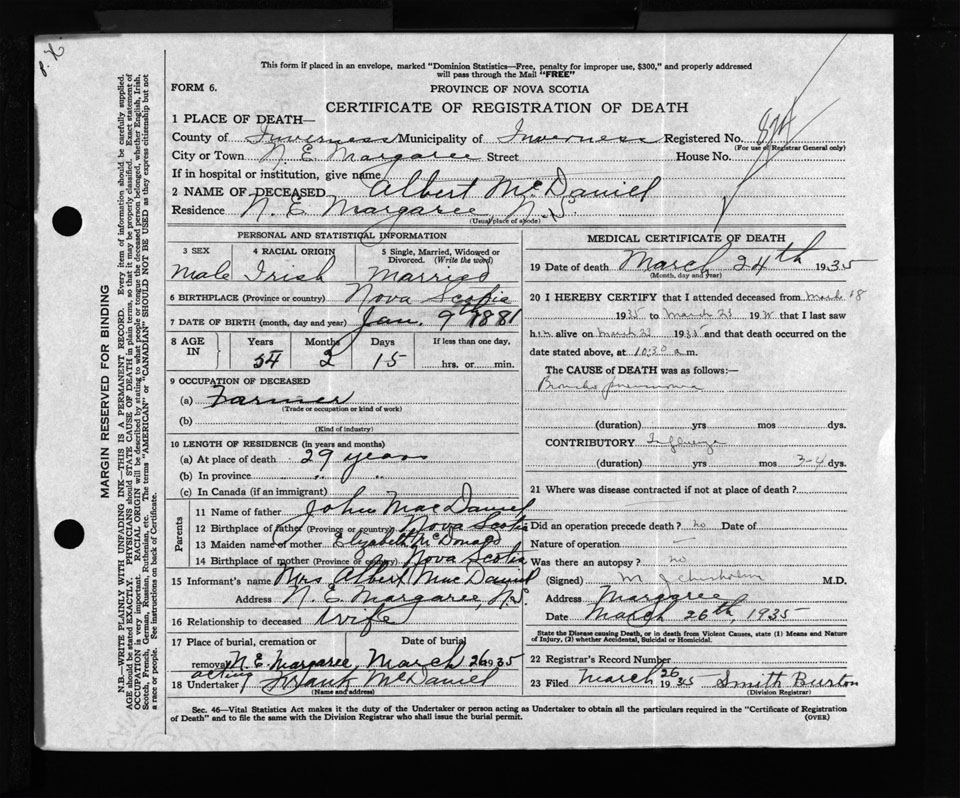 P.X
This form if placed in an envelope, marked "Dominion Statistics—Free, penalty for improper use, $300," and properly addressed
will pass through the Mail "FREE"
FORM 6.
PROVINCE OF NOVA SCOTIA
CERTIFICATE OF REGISTRATION OF DEATH
1 PLACE OF DEATH—
County of Inverness Municipality of Inverness Registered No.
(For use of Registrar General only)
City or Town N. E. Margaree Street House No.
If in hospital or institution, give name
2 NAME OF DECEASED Albert McDaniel
Residence N. E. Margaree, N.S.
(Usual place of abode)
PERSONAL AND STATISTICAL INFORMATION
3 SEX 4 RACIAL ORIGIN 5 Single, Married, Widowed or Divorced. (Write the word)
Male Irish Married
6 BIRTHPLACE (Province or country) Nova Scotia
7 DATE OF BIRTH (month, day and year) Jan. 9th 1881
8 AGE IN Years Months Days If less than one day,
54 2 15 hrs. or min.
9 OCCUPATION OF DECEASED
(a) Farmer
(Trade or occupation or kind of work)
(b)
(Kind of industry)
10 LENGTH OF RESIDENCE (in years and months)
(a) At place of death 29 years
(b) In province " "
(c) In Canada (if an immigrant)
Parents
11 Name of father John MacDaniel
12 Birthplace of father (Province or country) Nova Scotia
13 Maiden name of mother Elizabeth McDonald
14 Birthplace of mother (Province or country) Nova Scotia
15 Informant's name Mrs Albert MacDaniel
Address N. E. Margaree, N.S.
16 Relationship to deceased Wife
17 Place of burial, cremation or removal Date of burial
N. E. Margaree, March 26 1935
acting
18 Undertaker Frank McDaniel
(Name and address)
MEDICAL CERTIFICATE OF DEATH
19 Date of death March 24th 1935
(Month, day and year)
20 I HEREBY CERTIFY that I attended deceased from March 18
1935 to March 23 193 that I last saw
him alive on March 23 1935 and that death occurred on
date stated above, at 10:30 a.m.
The CAUSE of DEATH was as follows:—
Broncho pneumonia
(duration) yrs mos dys.
CONTRIBUTORY Influenza
(duration) yrs mos 3-4 dys.
21 Where was disease contracted if not at place of death?
Did an operation precede death? no Date of
Nature of operation —
Was there an autopsy? no
(Signed) M J Chisholm M.D.
Address Margaree
Date March 26th, 1935
State the Disease causing Death, or in death from Violent Causes, state (1) Means and Nature
of Injury, (2) whether Accidental, Suicidal or Homicidal.
22 Registrar's Record Number
23 Filed March 26 1935 Smith Burton
(Division Registrar)
Sec. 46—Vital Statistics Act makes it the duty of the Undertaker or person acting as Undertaker to obtain all the particulars required in the "Certificate of Registration
of Death" and to file the same with the Division Registrar who shall issue the burial permit. (OVER)
MARGIN RESERVED FOR BINDING
N.B.—WRITE PLAINLY WITH UNFADING INK—THIS IS A PERMANENT RECORD. Every item of information should be carefully supplied.
AGE should be stated EXACTLY. PHYSICIANS should STATE CAUSE OF DEATH in plain terms, so that it may be properly classified. Exact statement of
OCCUPATION is very important. RACIAL ORIGIN will be described by stating to what people or tongue the deceased person belonged, whether English, Irish,
Scotch, French, German, Russian, Ruthenian, etc. The terms "AMERICAN" or "CANADIAN" SHOULD NOT BE USED as they express citizenship but not
a race or people. See instructions on back of Certificate.